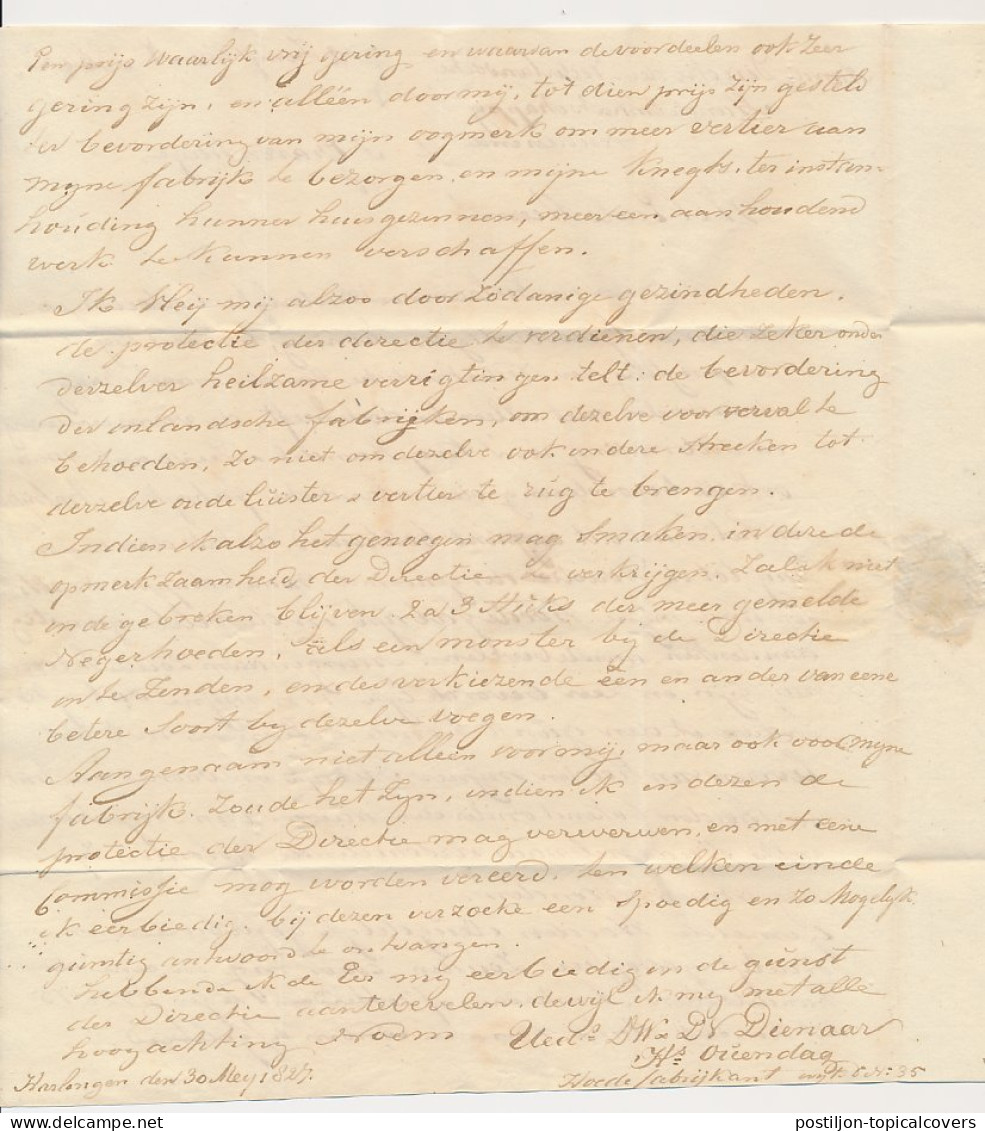 Een prijs waarlijk vrij gering en waarvan de voordeelen ook zeer
gering zijn, en alléén door mij, tot dien prijs zijn gesteld
ter bevordering van mijn oogmerk om meer vertier aan
myne fabrijk te bezorgen, en mijne knegts, ter instan-
houding hunner huisgezinnen, meer een aanhoudend
werk te kunnen verschaffen.
Ik Vleij mij alzoo door zodanige gezindheden.
de protectie der directie te verdienen, die zeker onder
derzelver heilzame verrigtingen telt: de bevordering
der inlandsche fabrijken, om dezelve voor verval te
behoeden, zo niet om dezelve ook in dere streeken tot
derzelve oude luister & vertier te rúg te brengen.
Indien ik alzo het genoegen mag smaken, in deze de
opmerkzaamheid der Directie verkrijgen. Zal ik niet
in de gebreken blijven 2 a 3 stuks der meer gemelde
Negerhoeden, als een monster bij de Directie
in te Zenden, en des verkiezende één en ander van eene
betere Soort by dezelve voegen.
Aangenaam niet alléén voor mij, maar ook voor myne
fabrijk. Zoude het zyn, indien ik in dezen de
protectie der Directie mag verwerven, en met eene
Commissie mog worden vereerd. ten welken einde
ik eerbiedig bij dezen verzoeke een spoedig en zo Mogelyk
gunstig antwoord te ontvangen.
hebbende ik de Eer my eerbiedig in de gunst
der Directie aantebevelen, dewyl ik my met alle
hoogachting Noem
Ued.s DW. Dr Dienaar
Hs Ouendag
Harlengen den 30 Mey 1827.
Hoedefabrijkant wijk E N: 35
postiljon-topicalcovers